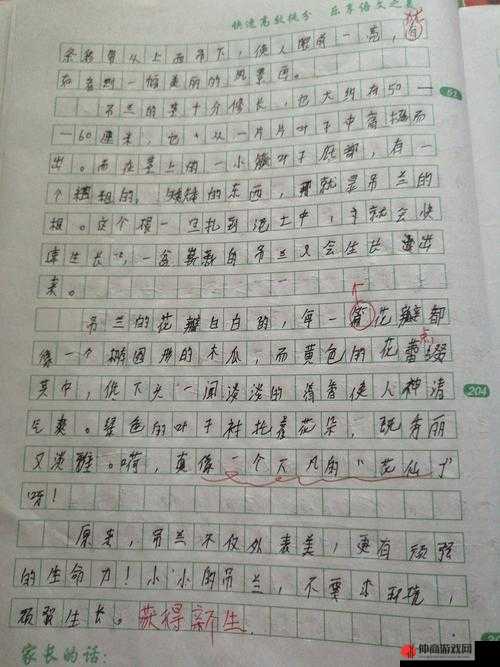 快速高效提分 乐享语文之美
条般带从上而吊下,使人眼前一亮,
如看到一幅美丽的风景画。
吊兰的茎十分修长,也大约有50—
—60厘米,它从一片片叶子中高插而
出。而在茎上的一小簇叶子底部,有一
个粗粗的、矮矮的东西,那就是吊兰的
根。这个根一旦扎到泥土中,就会快
速生长,一盆崭新的吊兰又会生长出
来。
51
吊兰的花瓣白白的,每一篇花瓣都
像一个椭圆形的木瓜,而黄色的花蕾缀
点
其中,低下头一闻淡淡的清香使人神清
204
气爽。绿色的叶子衬托着花朵,既秀丽
又淡雅。真像一个下凡的“花仙子”
呀!
原来,吊兰不仅外表美,更有顽强
的生命力!小小的吊兰,不要求环境,
顽强生长。获得新生
家长的话:
仲商游戏网